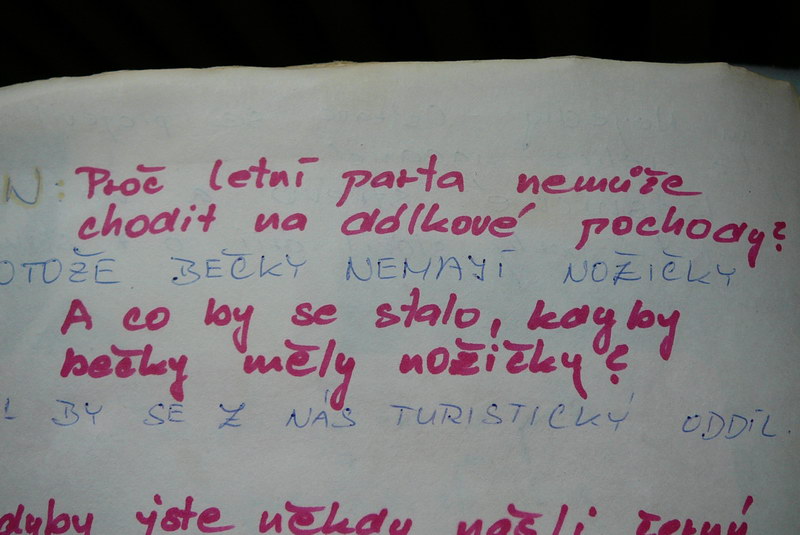 N: Proč letní parta nemůže
chodit na dálkové pochody?
OTOŽE BEČKY NEMAJÍ NOŽIČKY
A co by se stalo, kdyby
bečky měly nožičky?
L BY SE Z NÁS TURISTICKÝ ODDÍL.
dyby jste někdy našli černý